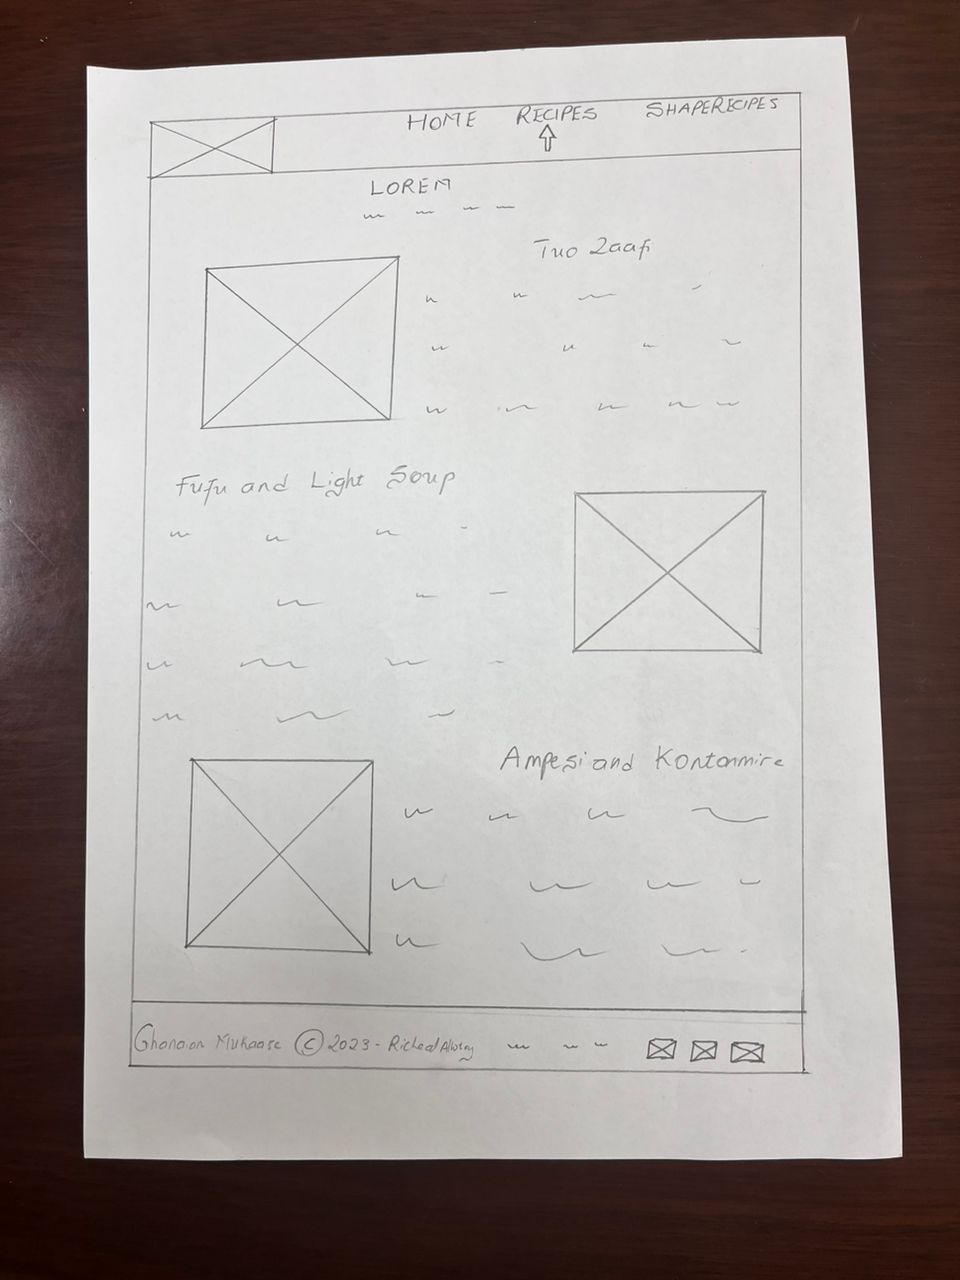 HOME RECIPES SHAPERECIPES
LOREM
Tuo Zaafi
Fufu and Light Soup
Ampesi and Kontonmire
Ghanaian Mukaase © 2023 - Richeal